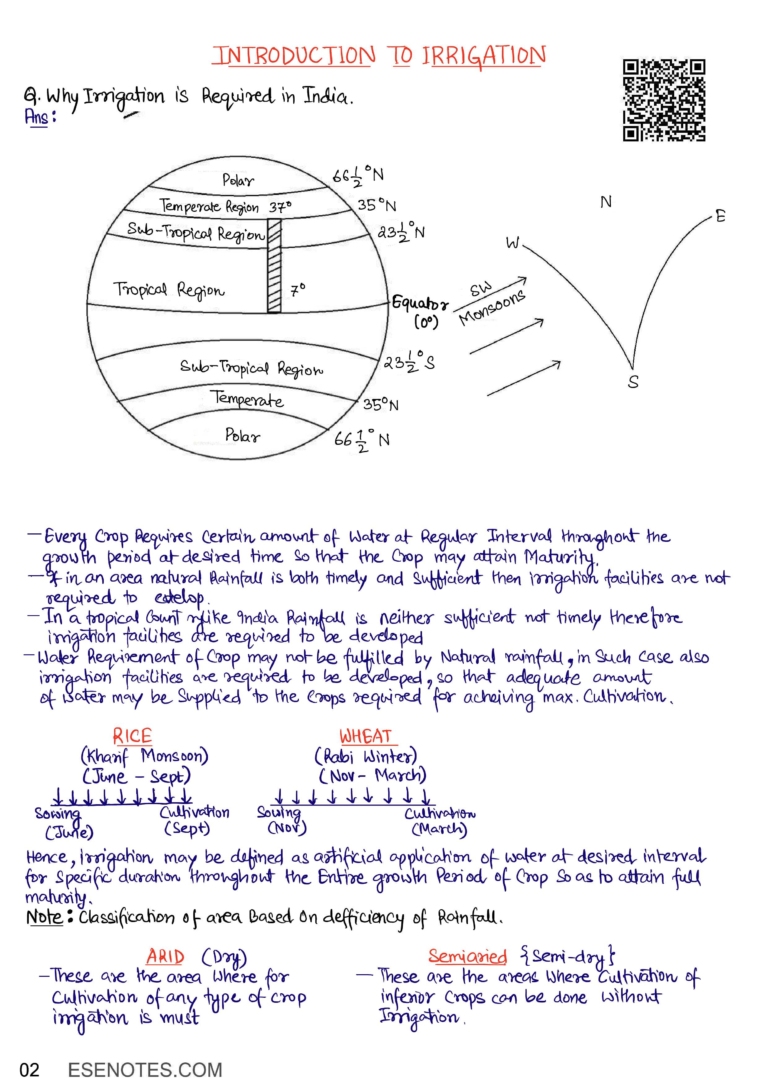 INTRODUCTION TO IRRIGATION
Q. Why Irrigation is Required in India.
Ans:
Polar
66½°N
Temperate Region 37°
35°N
Sub-Tropical Region
23½°N
Tropical Region
7°
Equator
(0°)
23½°S
Sub-Tropical Region
Temperate
35°N
Polar
66½°N
N
W
E
SW
Monsoons
S
— Every Crop Requires Certain amount of Water at Regular Interval throughout the
growth period at desired time so that the Crop may attain Maturity.
— If in an area natural Rainfall is both timely and Sufficient then irrigation facilities are not
required to
— In a tropical like India Rainfall is neither sufficient not timely therefore
irrigation facilities are required to be developed
— Water Requirement of Crop may not be fulfilled by Natural rainfall, in Such Case also
irrigation facilities are required to be developed, so that adequate amount
of Water may be Supplied to the Crops required for acheiving max. Cultivation.
RICE
(Kharif Monsoon)
(June - Sept)
Sowing
(June)
Cultivation
(Sept)
WHEAT
(Rabi Winter)
(Nov - March)
Sowing
(Nov)
Cultivation
(March)
Hence, irrigation may be defined as artificial application of water at desired interval
for Specific duration throughout the Entire growth Period of Crop So as to attain full
maturity.
Note: Classification of area Based On defficiency of Rainfall.
ARID (Dry)
— These are the area Where for
Cultivation of any type of crop
irrigation is must
Semiaried {Semi-dry}
— These are the areas Where Cultivation of
inferior Crops can be done Without
Irrigation.
02 ESENOTES.COM